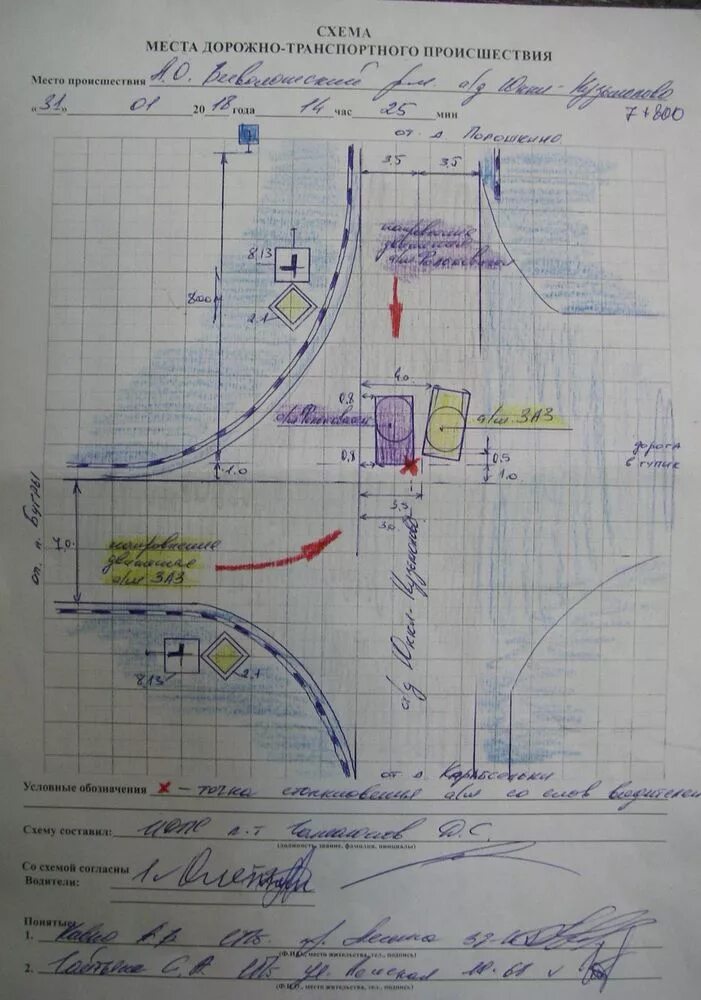 СХЕМА
МЕСТА ДОРОЖНО-ТРАНСПОРТНОГО ПРОИСШЕСТВИЯ
Место происшествия Л.О. Всеволожский а/д Юкки-Кузьмолово
"31" 01 2018 года 14 час 25 мин 7+800
от д. Порошкино
3,5 3,5
направление
движения
а/м Фольксваген
8.13
800м
2.1
4.0
0,8
а/м Фольксваген
а/м ЗАЗ
0,8
0,5
дорога
в тупик
1.0
1.0
3,5
3.0
от п. Бугры
7.0
направление
движения
а/м ЗАЗ
а/д Юкки-Кузьмолово
8.13
2.1
от д.
Условные обозначения × – точка столкновения а/м со слов водителей
Схему составил: Д.С.
(должность, звание, фамилия, инициалы)
Со схемой согласны
Водители: 1.
Понятые
1. А.В. СПб.
(Ф.И.О., место жительства, тел., подпись)
2. С.А. СПб ул.
(Ф.И.О., место жительства, тел., подпись)